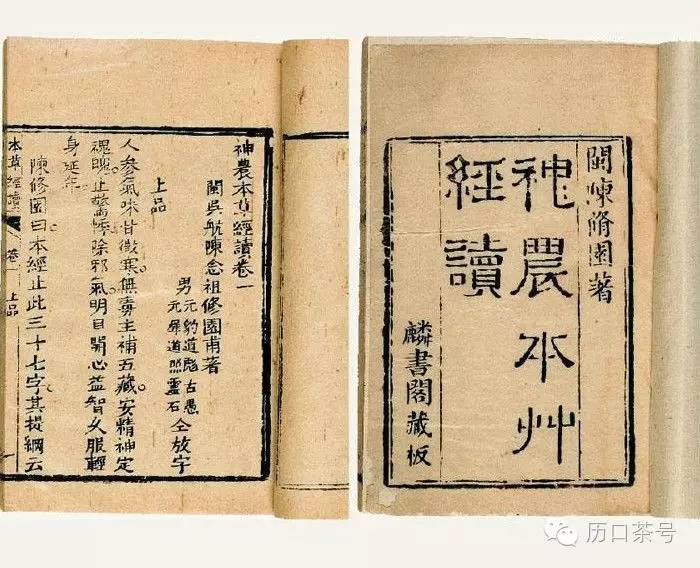 神農本草經讀卷一
閩吳航陳念祖修園甫著
男
元豹道彪古愚
元犀道照靈石
仝放字
上品
人參氣味甘微寒無毒主補五藏安精神定
魂魄止驚悸除邪氣明目開心益智久服輕
身延年
陳修園曰本經止此三十七字其提綱云
本草經讀
卷一
上品
閩陳脩園著
神農本艸
經讀
麟書閣藏板
历口茶号